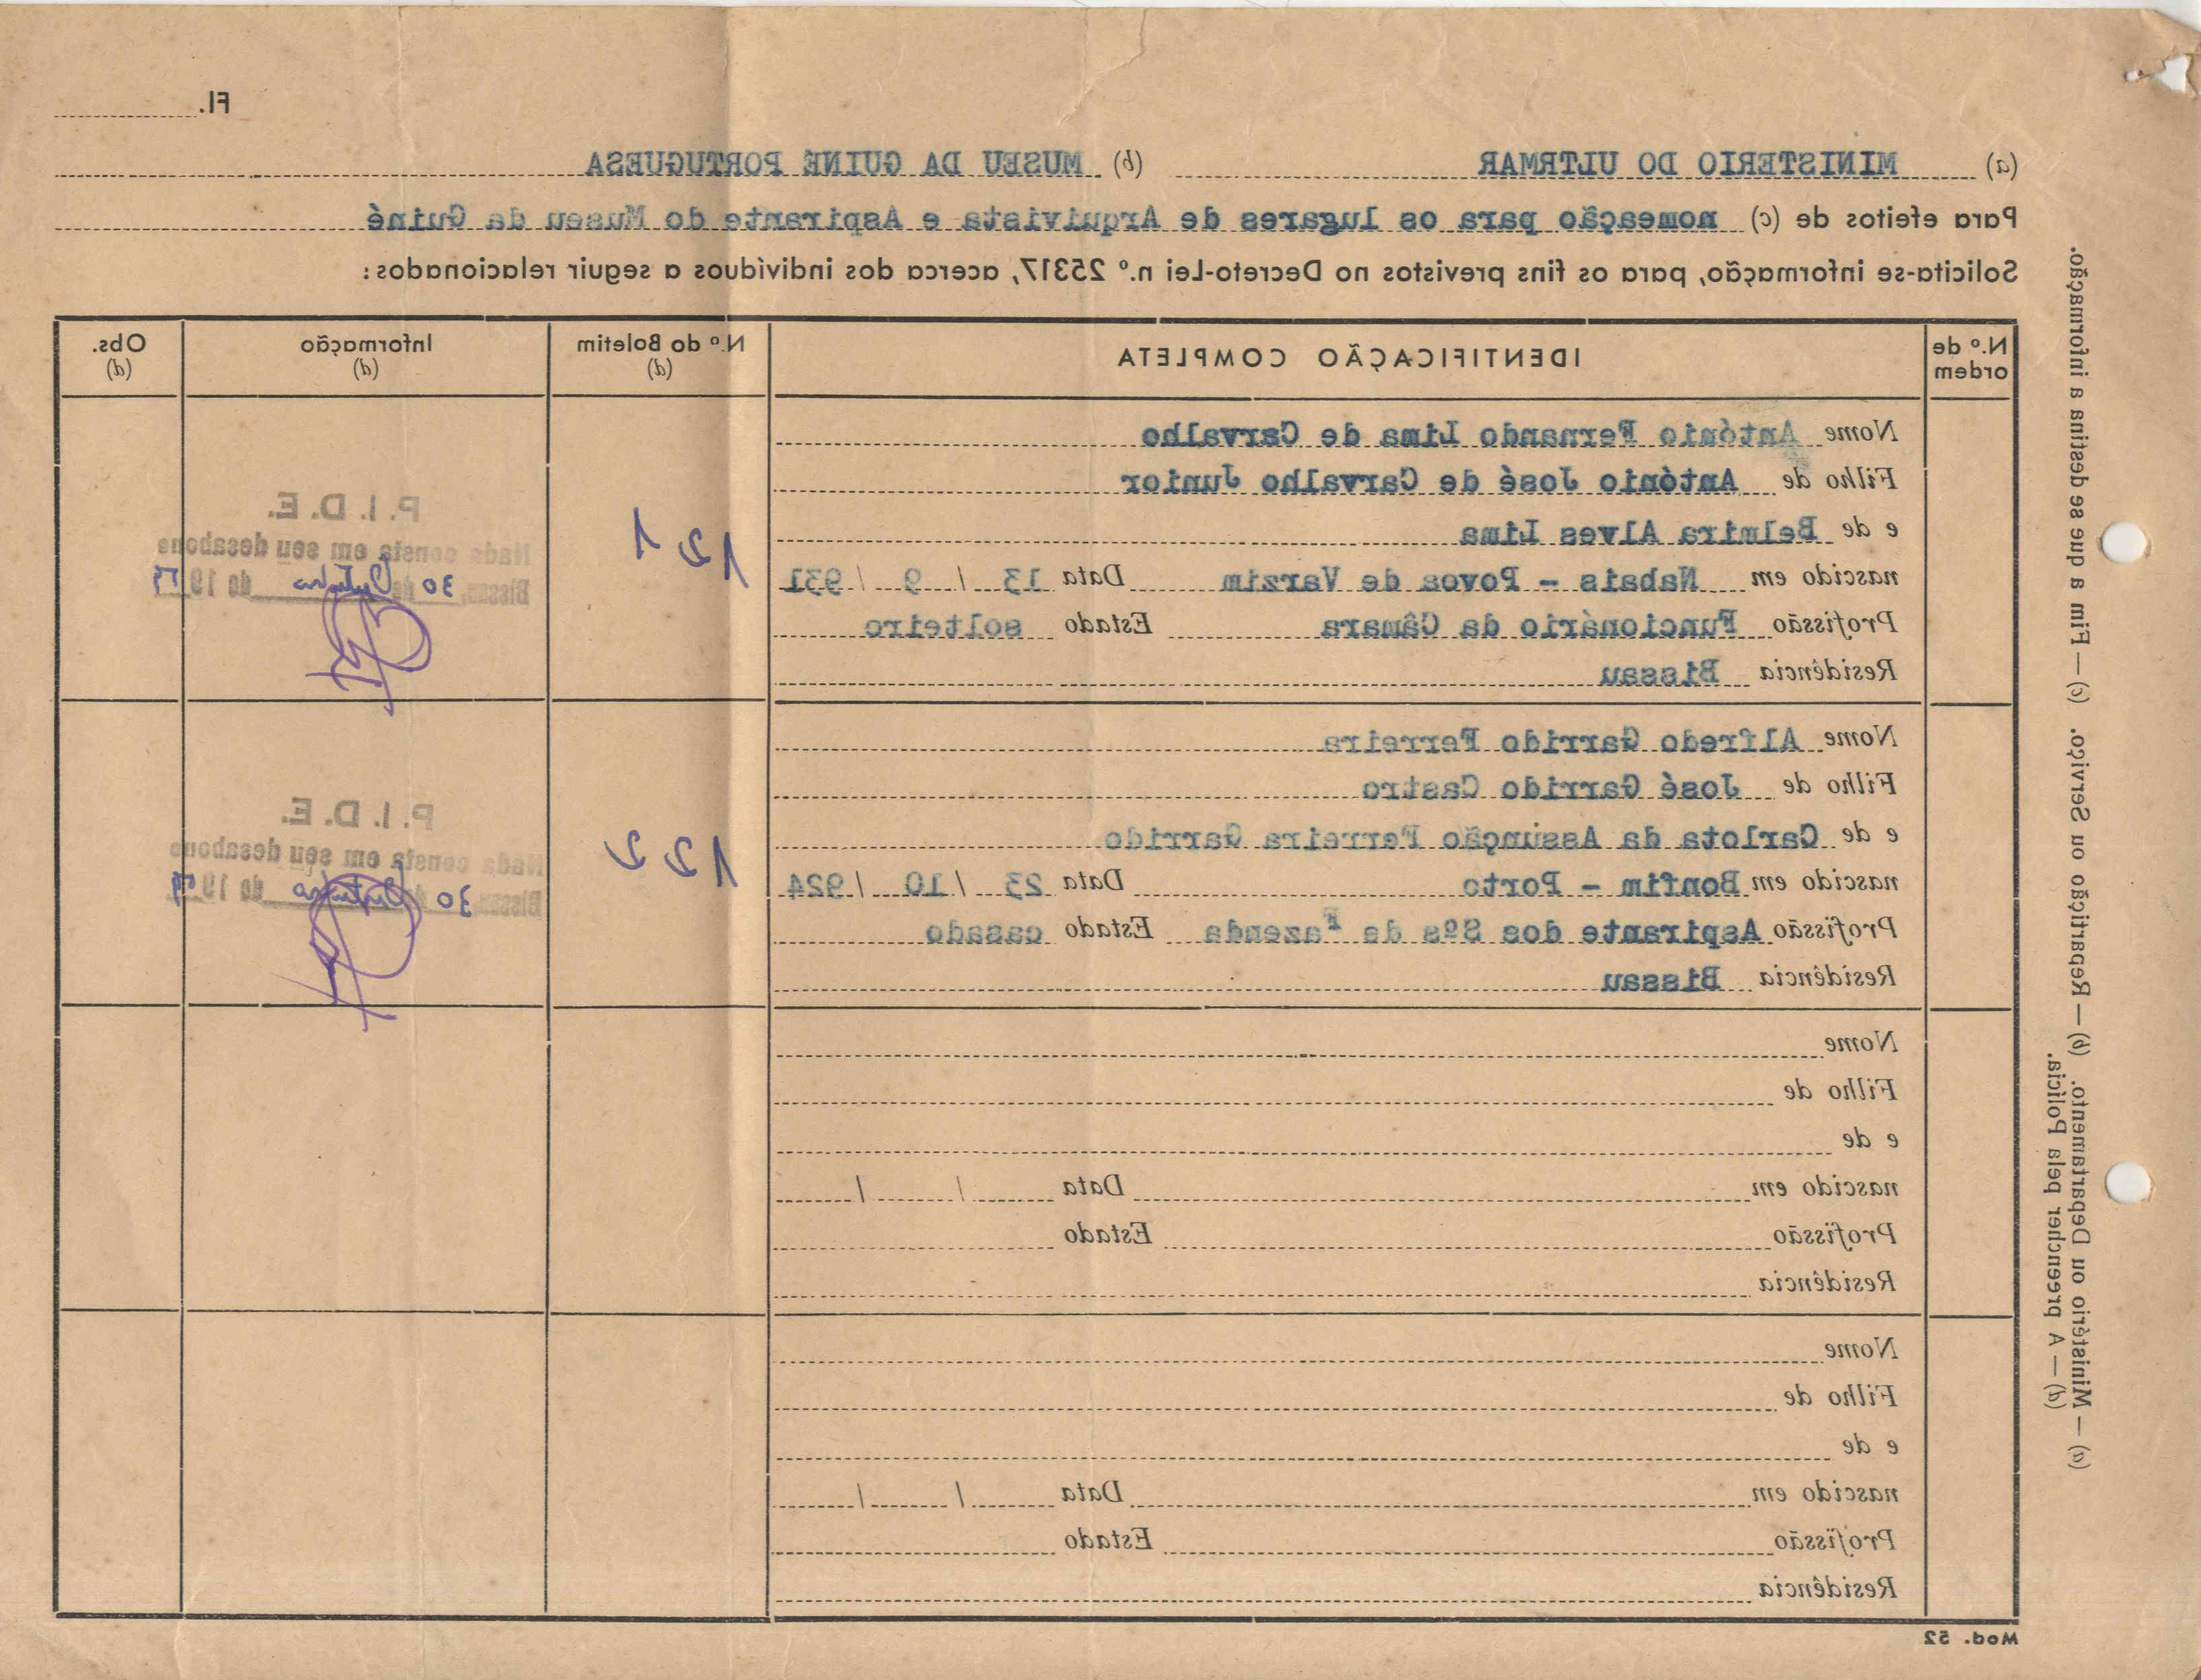 Fl.
(a) MINISTERIO DO ULTRMAR (b) MUSEU DA GUINÉ PORTUGUESA
Para efeitos de (c) nomeação para os lugares de Arquivista e Aspirante do Museu da Guiné
Solicita-se informação, para os fins previstos no Decreto-Lei n.º 25317, acerca dos indivíduos a seguir relacionados:
N.º de ordem
IDENTIFICAÇÃO COMPLETA
N.º do Boletim (d)
Informação (d)
Obs. (d)
Nome António Fernando Lima de Carvalho
Filho de António José de Carvalho Junior
e de Belmira Alves Lima
nascido em Nabais - Povoa de Varzim Data 13 / 9 / 931
Profissão Funcionário da Câmara Estado solteiro
Residência Bissau
121
P. I. D. E.
Nada consta em seu desabono
Bissau, 30 de Outubro de 19
Nome Alfredo Garrido Ferreira
Filho de José Garrido Castro
e de Carlota da Assunção Ferreira Garrido
nascido em Bonfim - Porto Data 23 / 10 / 924
Profissão Aspirante dos Sºs de Fazenda Estado casado
Residência Bissau
122
P. I. D. E.
Nada consta em seu desabono
Bissau, 30 de Outubro de 19
Nome
Filho de
e de
nascido em Data / /
Profissão Estado
Residência
Nome
Filho de
e de
nascido em Data / /
Profissão Estado
Residência
Mod. 52
(a) — Ministério ou Departamento. (b) — Repartição ou Serviço. (c) — Fim a que se destina a informação.
(d) — A preencher pela Polícia.